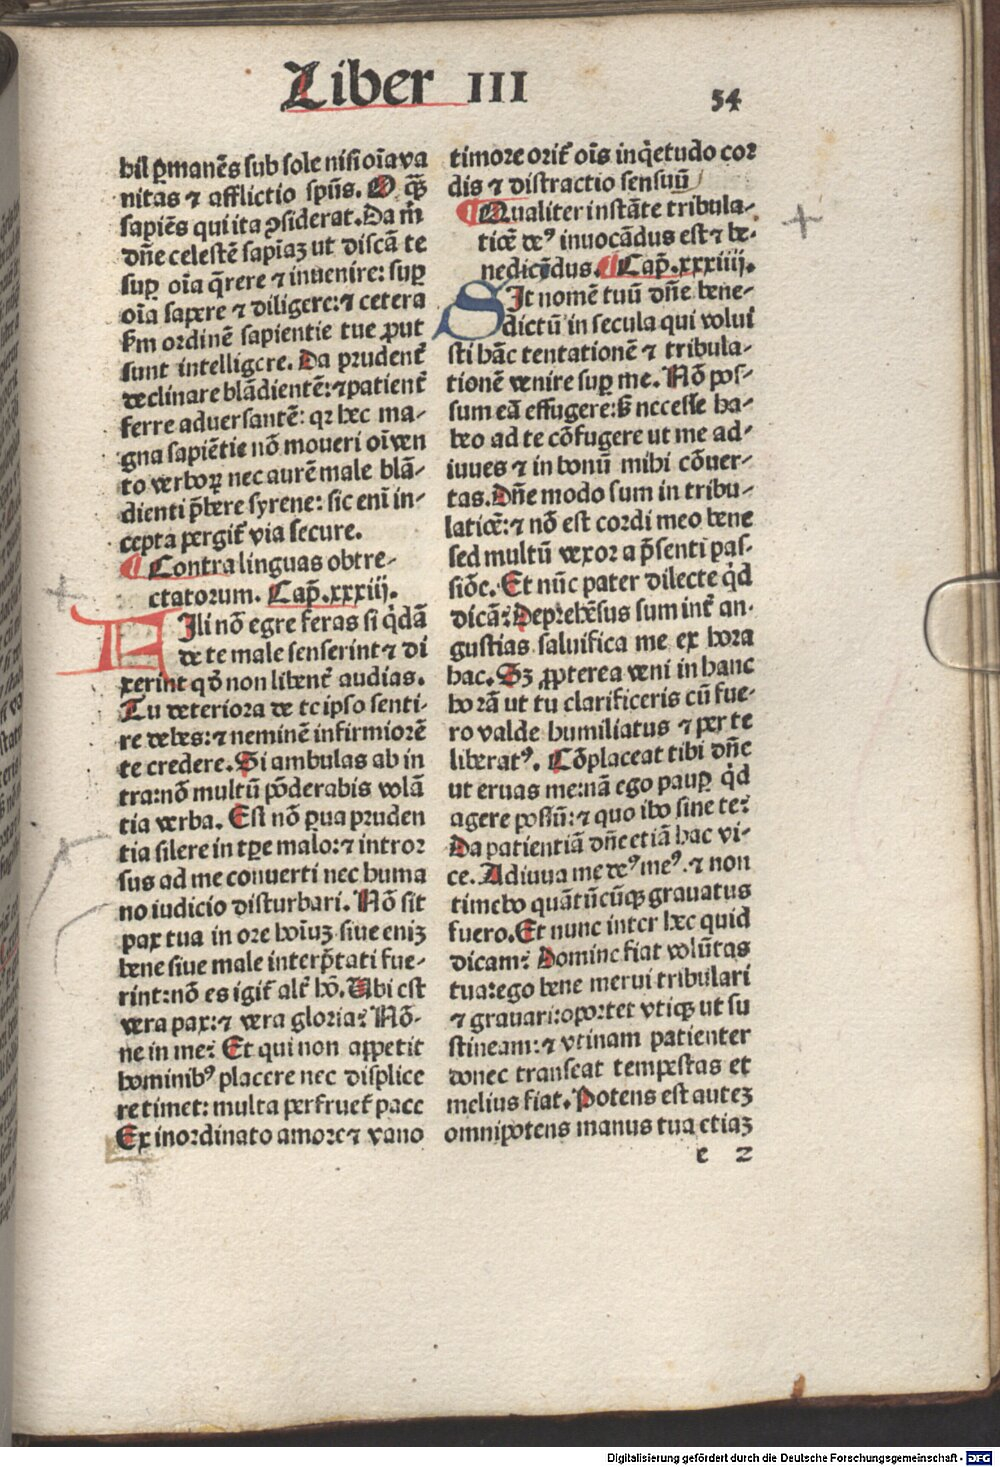 Liber III
54
hil ꝑmanẽs sub sole nisi oĩa va
nitas ⁊ afflictio spũs. O q̃ꝫ
sapiẽs qui ita ꝯsiderat. Da m̃
dñe celestẽ sapiaꝫ ut discã te
suꝑ oĩa q̃rere ⁊ inuenire: suꝑ
oĩa sapere ⁊ diligere: ⁊ cetera
ẜm ordinẽ sapientie tue ꝓut
sunt intelligere. Da prudent̃
declinare blãdientẽ: ⁊ patient̃
ferre aduersantẽ: qꝛ hec ma-
gna sapiẽtie nõ moueri oĩ ven
to verboꝝ nec aurẽ male blã-
dienti p̃bere syrene: sic enĩ in-
cepta pergit̃ via secure.
¶ Contra linguas obtre-
ctatorum. Cap̃. xxxiij.
FIli nõ egre feras si q̇dã
de te male senserint ⁊ di
xerint qð non libent̃ audias.
Tu deteriora de te ipso senti-
re debes: ⁊ neminẽ infirmiorẽ
te credere. Si ambulas ab in
tra: nõ multũ põderabis volã
tia verba. Est nõ ꝑua pruden
tia silere in tꝑe malo: ⁊ intror
sus ad me conuerti nec huma
no iudicio disturbari. Nõ sit
pax tua in ore hoĩuꝫ siue eniꝫ
bene siue male interp̃tati fue-
rint: nõ es igit̃ alt̃ hõ. Ubi est
vera pax: ⁊ vera gloria? Nõ-
ne in me? Et qui non appetit
hominibꝰ placere nec displice
re timet: multa perfruet̃ pace
Ex inordinato amore ⁊ vano
timore orit̃ oĩs inq̇etudo cor
dis ⁊ distractio sensuũ
¶ Qualiter instãte tribula-
tiõe deꝰ inuocãdus est ⁊ be-
nedicẽdus. ¶ Cap̃. xxxiiij.
SIt nomẽ tuũ dñe bene-
dictũ in secula qui volui
sti hãc tentationẽ ⁊ tribula-
tionẽ venire suꝑ me. Nõ pos-
sum eã effugere: ß necesse ha-
beo ad te cõfugere ut me ad-
iuues ⁊ in bonũ mihi cõuer-
tas. Dñe modo sum in tribu-
latiõe: ⁊ nõ est cordi meo bene
sed multũ vexor a p̃senti pas-
siõe. Et nũc pater dilecte q̇d
dicã? Deprehẽsus sum int̃ an-
gustias saluifica me ex hora
hac. Sꝫ ꝓpterea veni in hanc
horã ut tu clarificeris cũ fue-
ro valde humiliatus ⁊ per te
liberatꝰ. Cõplaceat tibi dñe
ut eruas me: nã ego pauꝑ q̇d
agere possũ: ⁊ quo ibo sine te?
Da patientiã dñe etiã hac vi-
ce. Adiuua me deꝰ meꝰ. ⁊ non
timebo quãtũcũqꝫ grauatus
fuero. Et nunc inter hec quid
dicam? Domine fiat volũtas
tua: ego bene merui tribulari
⁊ grauari: oportet vtiqꝫ ut su
stineam: ⁊ vtinam patienter
donec transeat tempestas et
melius fiat. Potens est auteꝫ
omnipotens manus tua etiaꝫ
e 2
Digitalisierung gefördert durch die Deutsche Forschungsgemeinschaft - DFG